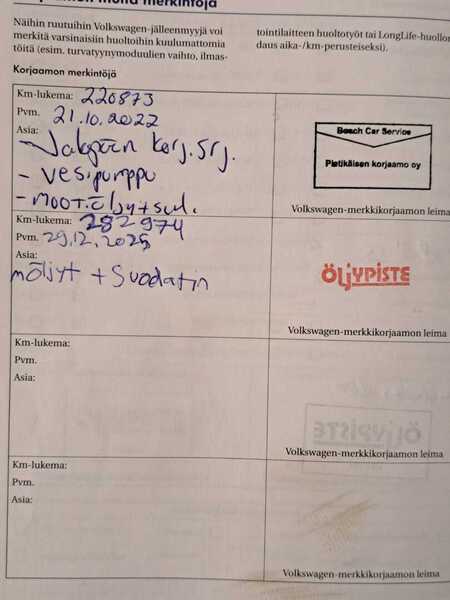 Näihin ruutuihin Volkswagen-jälleenmyyjä voi
merkitä varsinaisiin huoltoihin kuulumattomia
töitä (esim. turvatyynymoduulien vaihto, ilmas-
tointilaitteen huoltotyöt tai LongLife-huollon
daus aika-/km-perusteiseksi).
Korjaamon merkintöjä
Km-lukema: 220873
Pvm. 21.10.2022
Asia:
- Jakopään korj.srj.
- vesipumppu
- moot.öljy+sud.
Bosch Car Service
Pietikäisen korjaamo oy
Volkswagen-merkkikorjaamon leima
Km-lukema: 282974
Pvm. 29.12.2025
Asia:
möljyt + Suodatin
ÖLJYPISTE
Volkswagen-merkkikorjaamon leima
Km-lukema:
Pvm.
Asia:
ÖLJYPISTE
Volkswagen-merkkikorjaamon leima
Km-lukema:
Pvm.
Asia:
Volkswagen-merkkikorjaamon leima